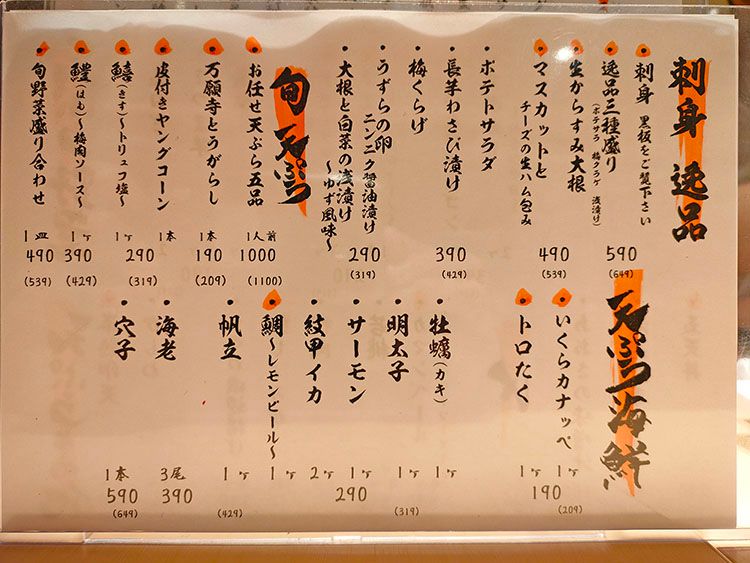 刺身 逸品
・刺身 黒板をご覧下さい
・逸品三種盛り
(ポテサラ 梅クラゲ 浅漬け)
590
(649)
・生からすみ大根
・マスカットと
チーズの生ハム包み
490
(539)
・ポテトサラダ
・長芋わさび漬け
390
(429)
・梅くらげ
・うずらの卵
ニンニク醤油漬け
・大根と白菜の浅漬け
〜ゆず風味〜
290
(319)
旬 天ぷら
・お任せ天ぷら五品
1人前
1000
(1100)
・万願寺とうがらし
1本
190
(209)
・皮付きヤングコーン
1本
・鱚(きす)〜トリュフ塩〜
1ヶ
290
(319)
・鱧(はも)〜梅肉ソース〜
1ヶ
390
(429)
・旬野菜盛り合わせ
1皿
490
(539)
天ぷら海鮮
・いくらカナッペ
1ヶ
・トロたく
1ヶ
190
(209)
・牡蠣(カキ)
1ヶ
・明太子
1ヶ
・サーモン
1ヶ
・紋甲イカ
2ヶ
290
(319)
・鯛〜レモンピール〜
1ヶ
・帆立
1ヶ
・海老
3尾
390
(429)
・穴子
1本
590
(649)